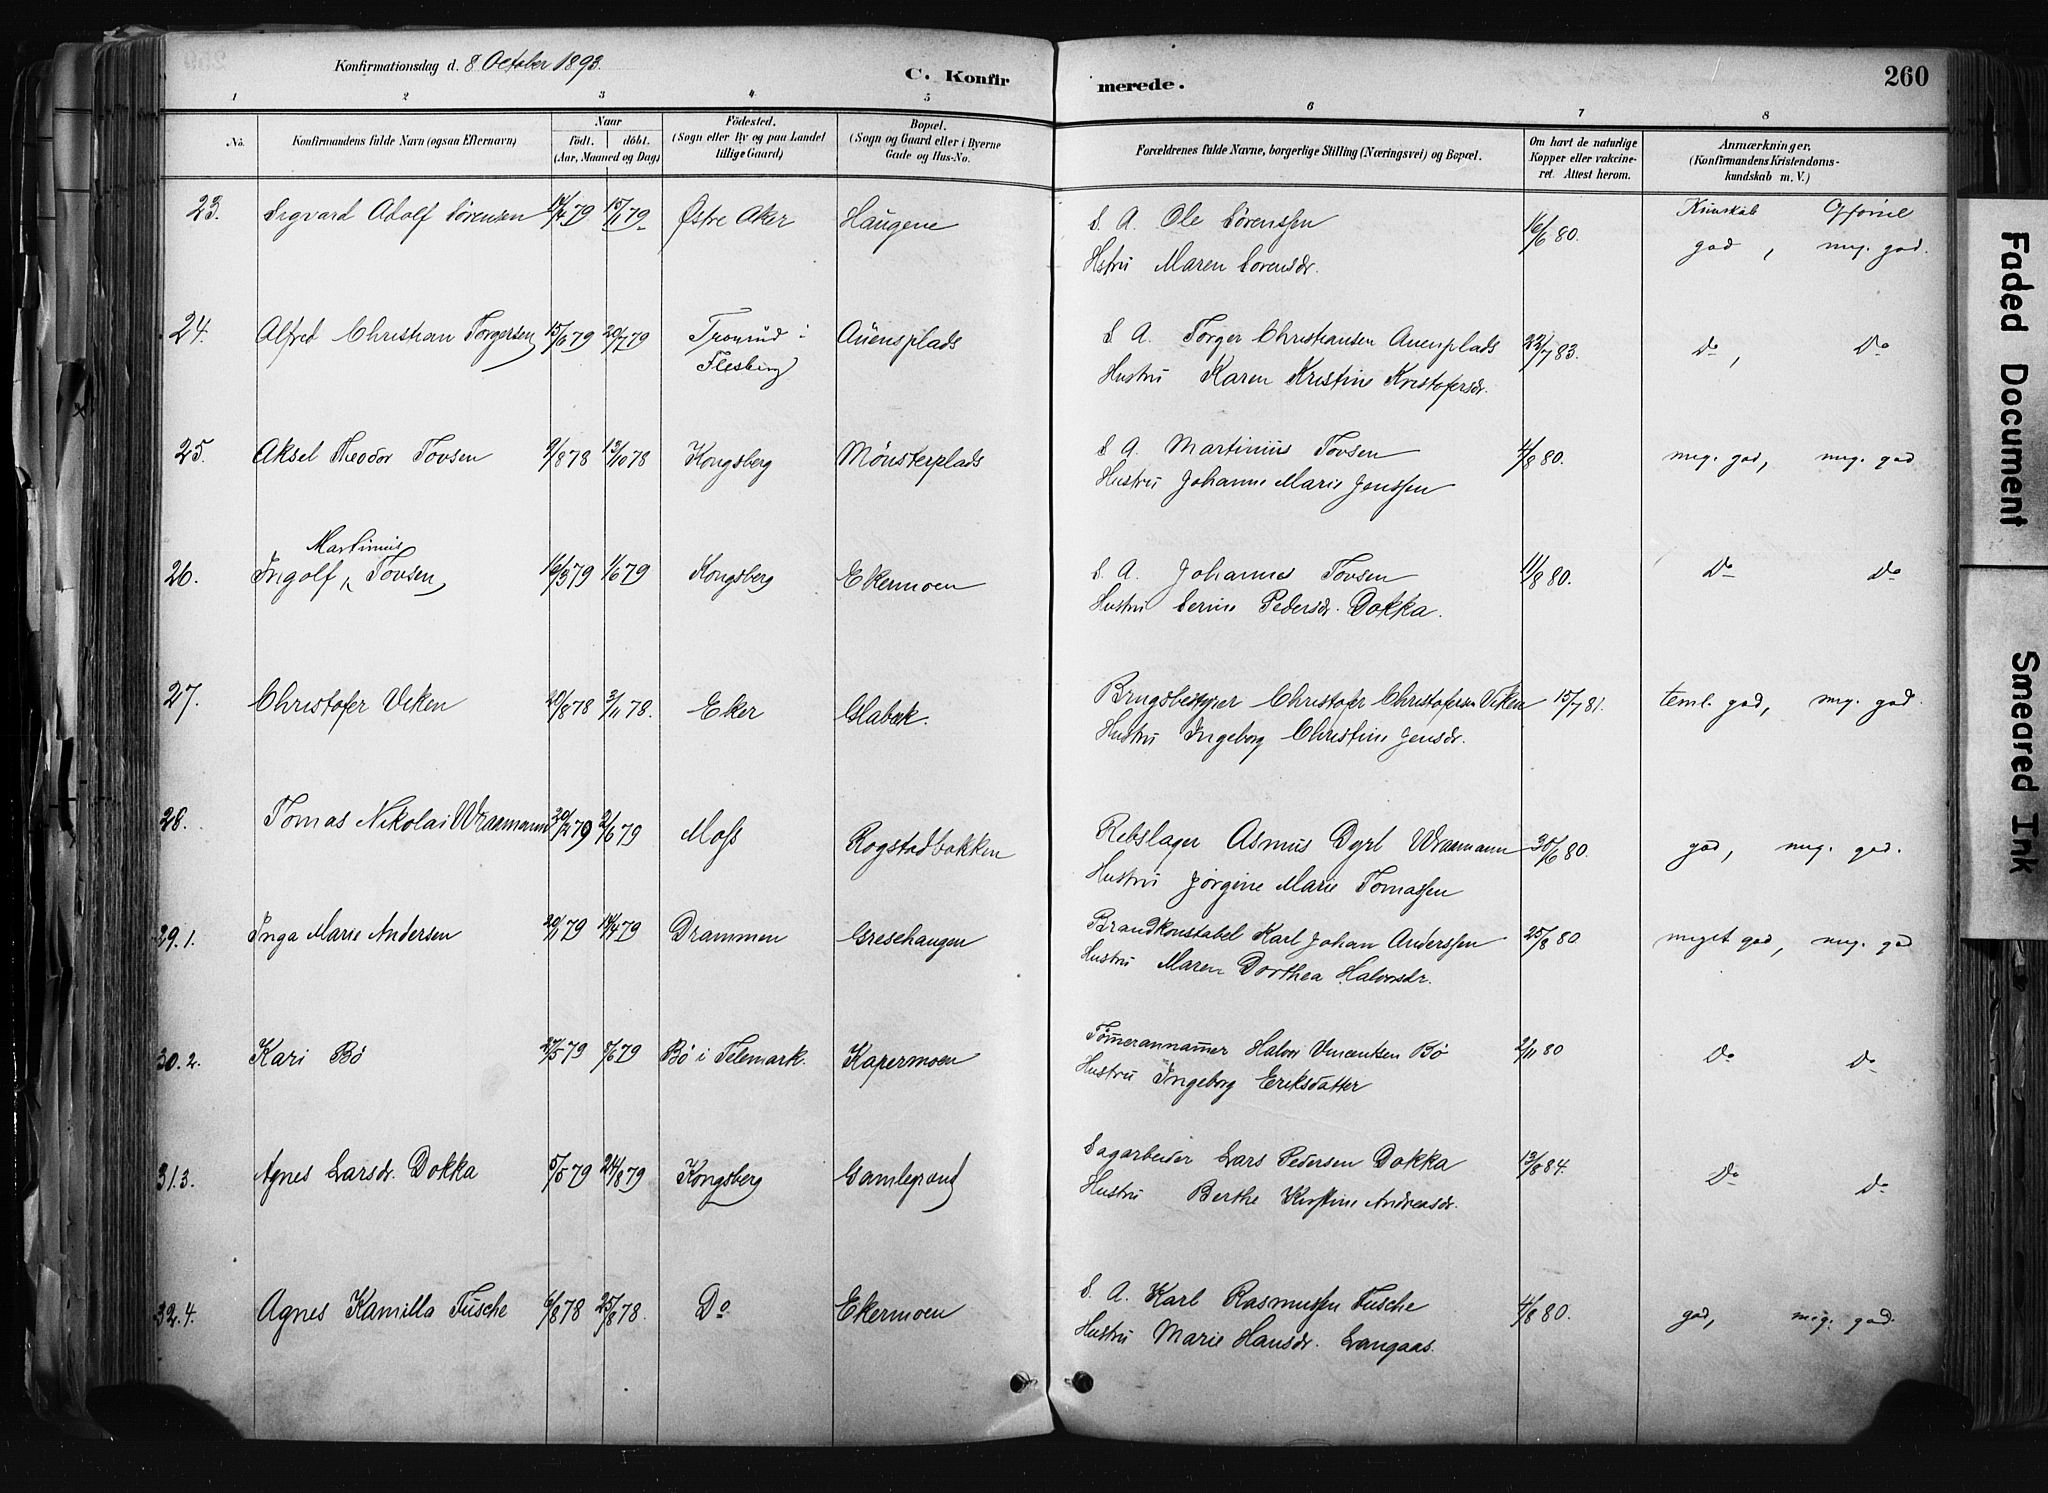 Konfirmationsdag d. 8 October 1893.
C. Konfirmerede.
260
1 2 3 4 5 6 7 8
No.
Konfirmandens fulde Navn (ogsaa Efternavn)
Naar
født. døbt.
(Aar, Maaned og Dag)
Fødested.
(Sogn eller By og paa Landet
tillige Gaard)
Bopæl.
(Sogn og Gaard eller i Byerne
Gade og Hus-No.
Forældrenes fulde Navne, borgerlige Stilling (Næringsvei) og Bopæl.
Om havt de naturlige
Kopper eller vakcine-
ret. Attest herom.
Anmærkninger,
(Konfirmandens Kristendoms-
kundskab m. V.)
23. Sigvard Adolf Sørensen 79 79 Østre Aker Haugene S. A. Ole Sørenssen 16/6 80. Kunskab
god, meg. god.
Hstru Maren Sorensdr.
24. Alfred Christian Torgersen 15/6 79 20/7 79 i Auensplads S. A. Torger Christiansen Auenplads 22/7 83. Do, Do
Flesberg Hustru Karen Kristine Kristofersdr.
25. Aksel Theodor Tovsen 9/8 78 13/10 78 Kongsberg Mønsterplads S A Martinius Tovsen 4/8 80. meg. god, meg. god
Hustru Johanne Marie Jenssen
Martinius
26. Ingolf Tovsen 16/3 79 1/6 79 Kongsberg Ekermoen S. A. Johannes Tovsen 11/8 80. Do Do
Hustru Serine Pedersdr. Dokka.
27. Christofer Viken 20/8 78 3/11 78. Eker Glabæk. Brugsbestyrer Christofer Christofersen Viken 15/7 81. teml. god, meg. god.
Hustru Ingeborg Christine Jensdr.
28. Tomas Nikolai Wraamann 79 2/6 79 Moss Rogstadbakken Rebslager Asmus Dyrl Wraamann 30/6 80. god, meg. god.
Hustru Jørgine Marie Tomassen
29. 1. Inga Marie Andersen 20/1 79 14/4 79 Drammen Gresehaugen Brandkonstabel Karl Johan Anderssen 25/8 80 meget god, meg. god
Hustru Maren Dorthea Halvorsdr.
30. 2. Kari Bø 27/5 79 7/6 79 Bø i Telemark. Kapermoen Halvor Vincentsen Bø 2/11 80 Do Do
Hustru Ingeborg Eriksdatter
31. 3. Agnes Larsdr. Dokka 5/5 79 24/8 79 Kongsberg Gamlegrand Sagarbeider Lars Pedersen Dokka 13/8 84. Do Do
Hustru Berthe Kirstine Andreasdr.
32. 4. Agnes Kamilla Tusche 6/8 78 25/8 78. Do Ekermoen S. A. Karl Rasmussen Tusche 4/8 80. god, meg. god.
Hustru Marie Hansdr. Langaas.
Faded Document
Smeared Ink